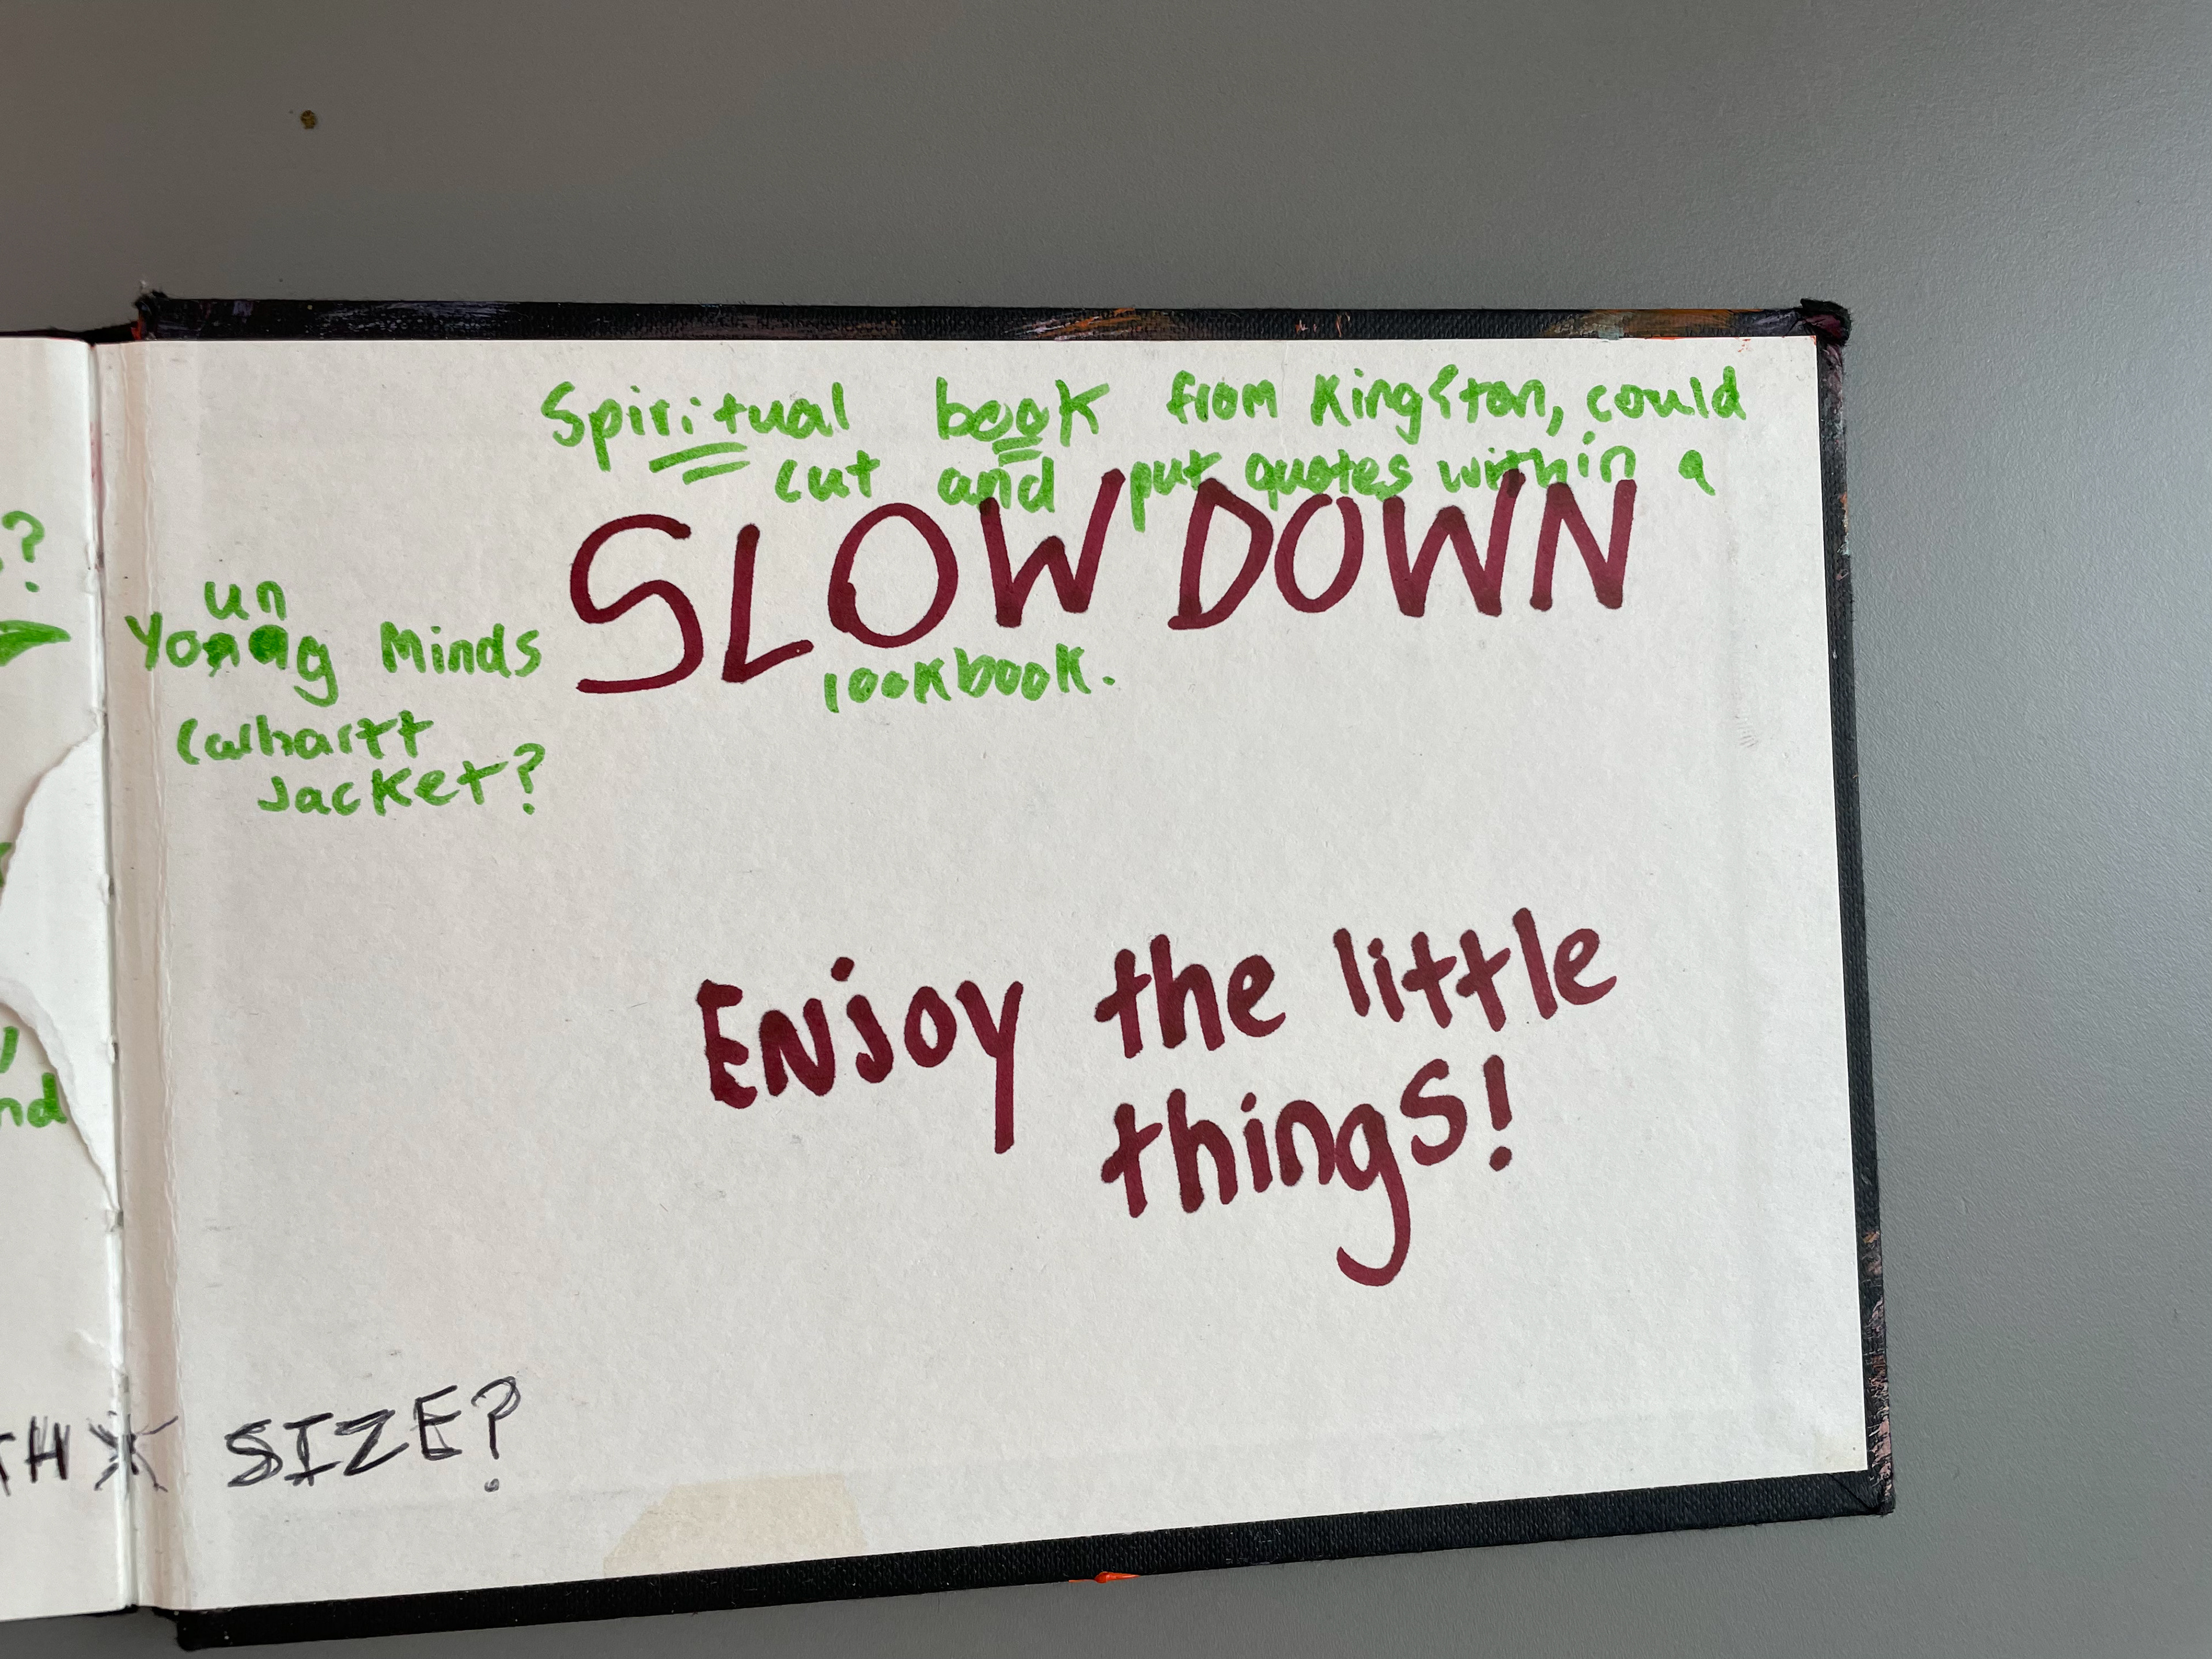 Spiritual book from Kingston, could
cut and put quotes within a
SLOW DOWN
lookbook.
un
Young Minds
Carhartt
Jacket?
Enjoy the little
things!
SIZE?
?
nd
TH